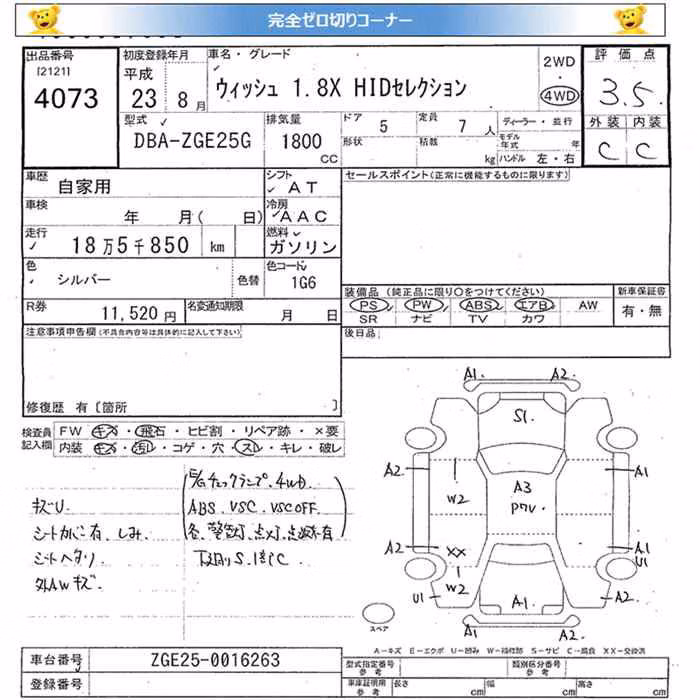 完全ゼロ切りコーナー
出品番号
[2121]
4073
初度登録年月
平成
23 8月
車名・グレード
ウィッシュ 1.8X HIDセレクション
2WD
・
4WD
評価点
3.5
型式
DBA-ZGE25G
排気量
1800
CC
ドア 5
定員 7人
ディーラー・並行
形状
積載
kg
モデル年式 年
ハンドル 左・右
外装 内装
C C
車歴
自家用
シフト
AT
セールスポイント(正常に機能するものに限ります)
車検
年 月( 日)
冷房
AAC
走行
18万5千850 km
燃料
ガソリン
色
シルバー
色替
色コード
1G6
装備品 (純正品に限り○をつけてください)
新車保証書
R券
11,520円
名変通知期限
月 日
PS PW ABS エアB AW
SR ナビ TV カワ
有・無
注意事項申告欄(不具合内容等は具体的に記入して下さい)
後日品
修復歴 有〔箇所 〕
検査員
記入欄
FW キズ・飛石・ヒビ割・リペア跡・×要
内装 キズ・汚レ・コゲ・穴・スレ・キレ・破レ
チェックランプ、4WD
キズU
ABS、VSC、VSC OFF
シートカバー有、しみ
各、警告灯、点灯、点滅有
シートヘタリ
外AWキズ
A1 A2
S1
A2 A1
W2
A3
PアU
A2 A1
XX
U1 W2 A1 U1 A2
A1 A2
スペア
A－キズ E－エクボ U－凹み W－補修跡 S－サビ C－腐食 XX－交換済
車台番号
ZGE25-0016263
型式指定番号
参考
類別区分番号
参考
登録番号
車庫証明用
参考
長さ cm 幅 cm 高さ cm